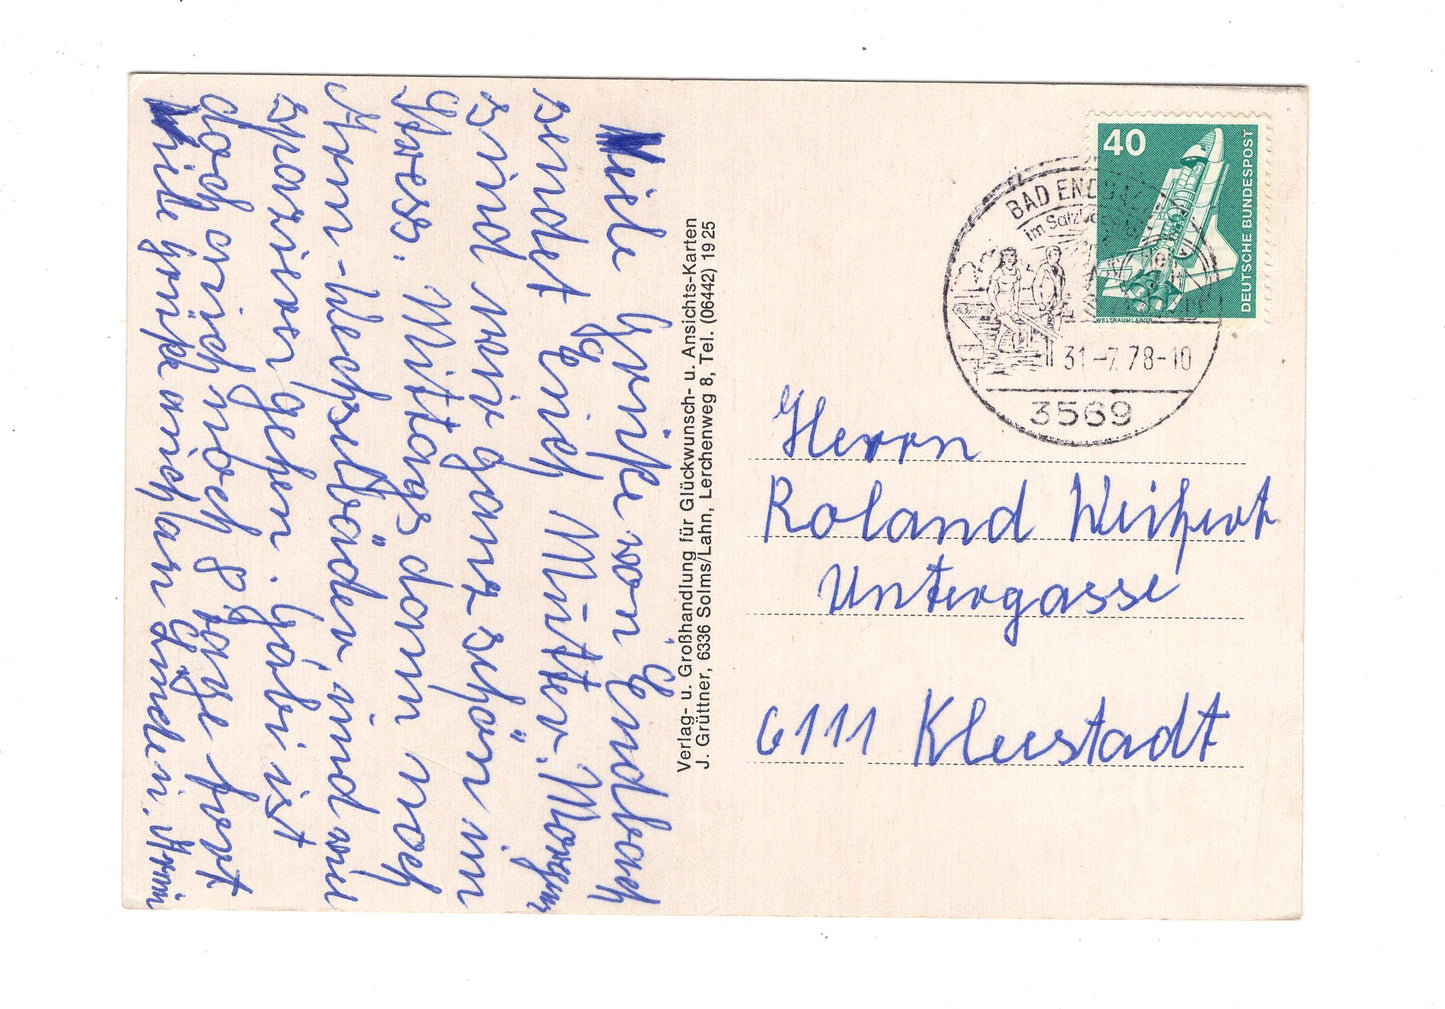 Viele Grüße von Endbach
sendet Erich Mutter. Morgens
sind wir ganz schön im
Stress. Mittags dann noch
Arm-Wechselbäder und viel
spazieren gehen. Gabi ist
doch auch noch 8 Tage fort
Viele Grüße auch an
Verlag- u. Großhandlung für Glückwunsch- u. Ansichts-Karten
J. Grüttner, 6336 Solms/Lahn, Lerchenweg 8, Tel. (06442) 19 25
40
DEUTSCHE BUNDESPOST
WELTRAUMLABOR
BAD ENDBACH
im Salzbödetal
31.-7.78-10
3569
Herrn
Roland Weihert
Untergasse
6111 Kleestadt